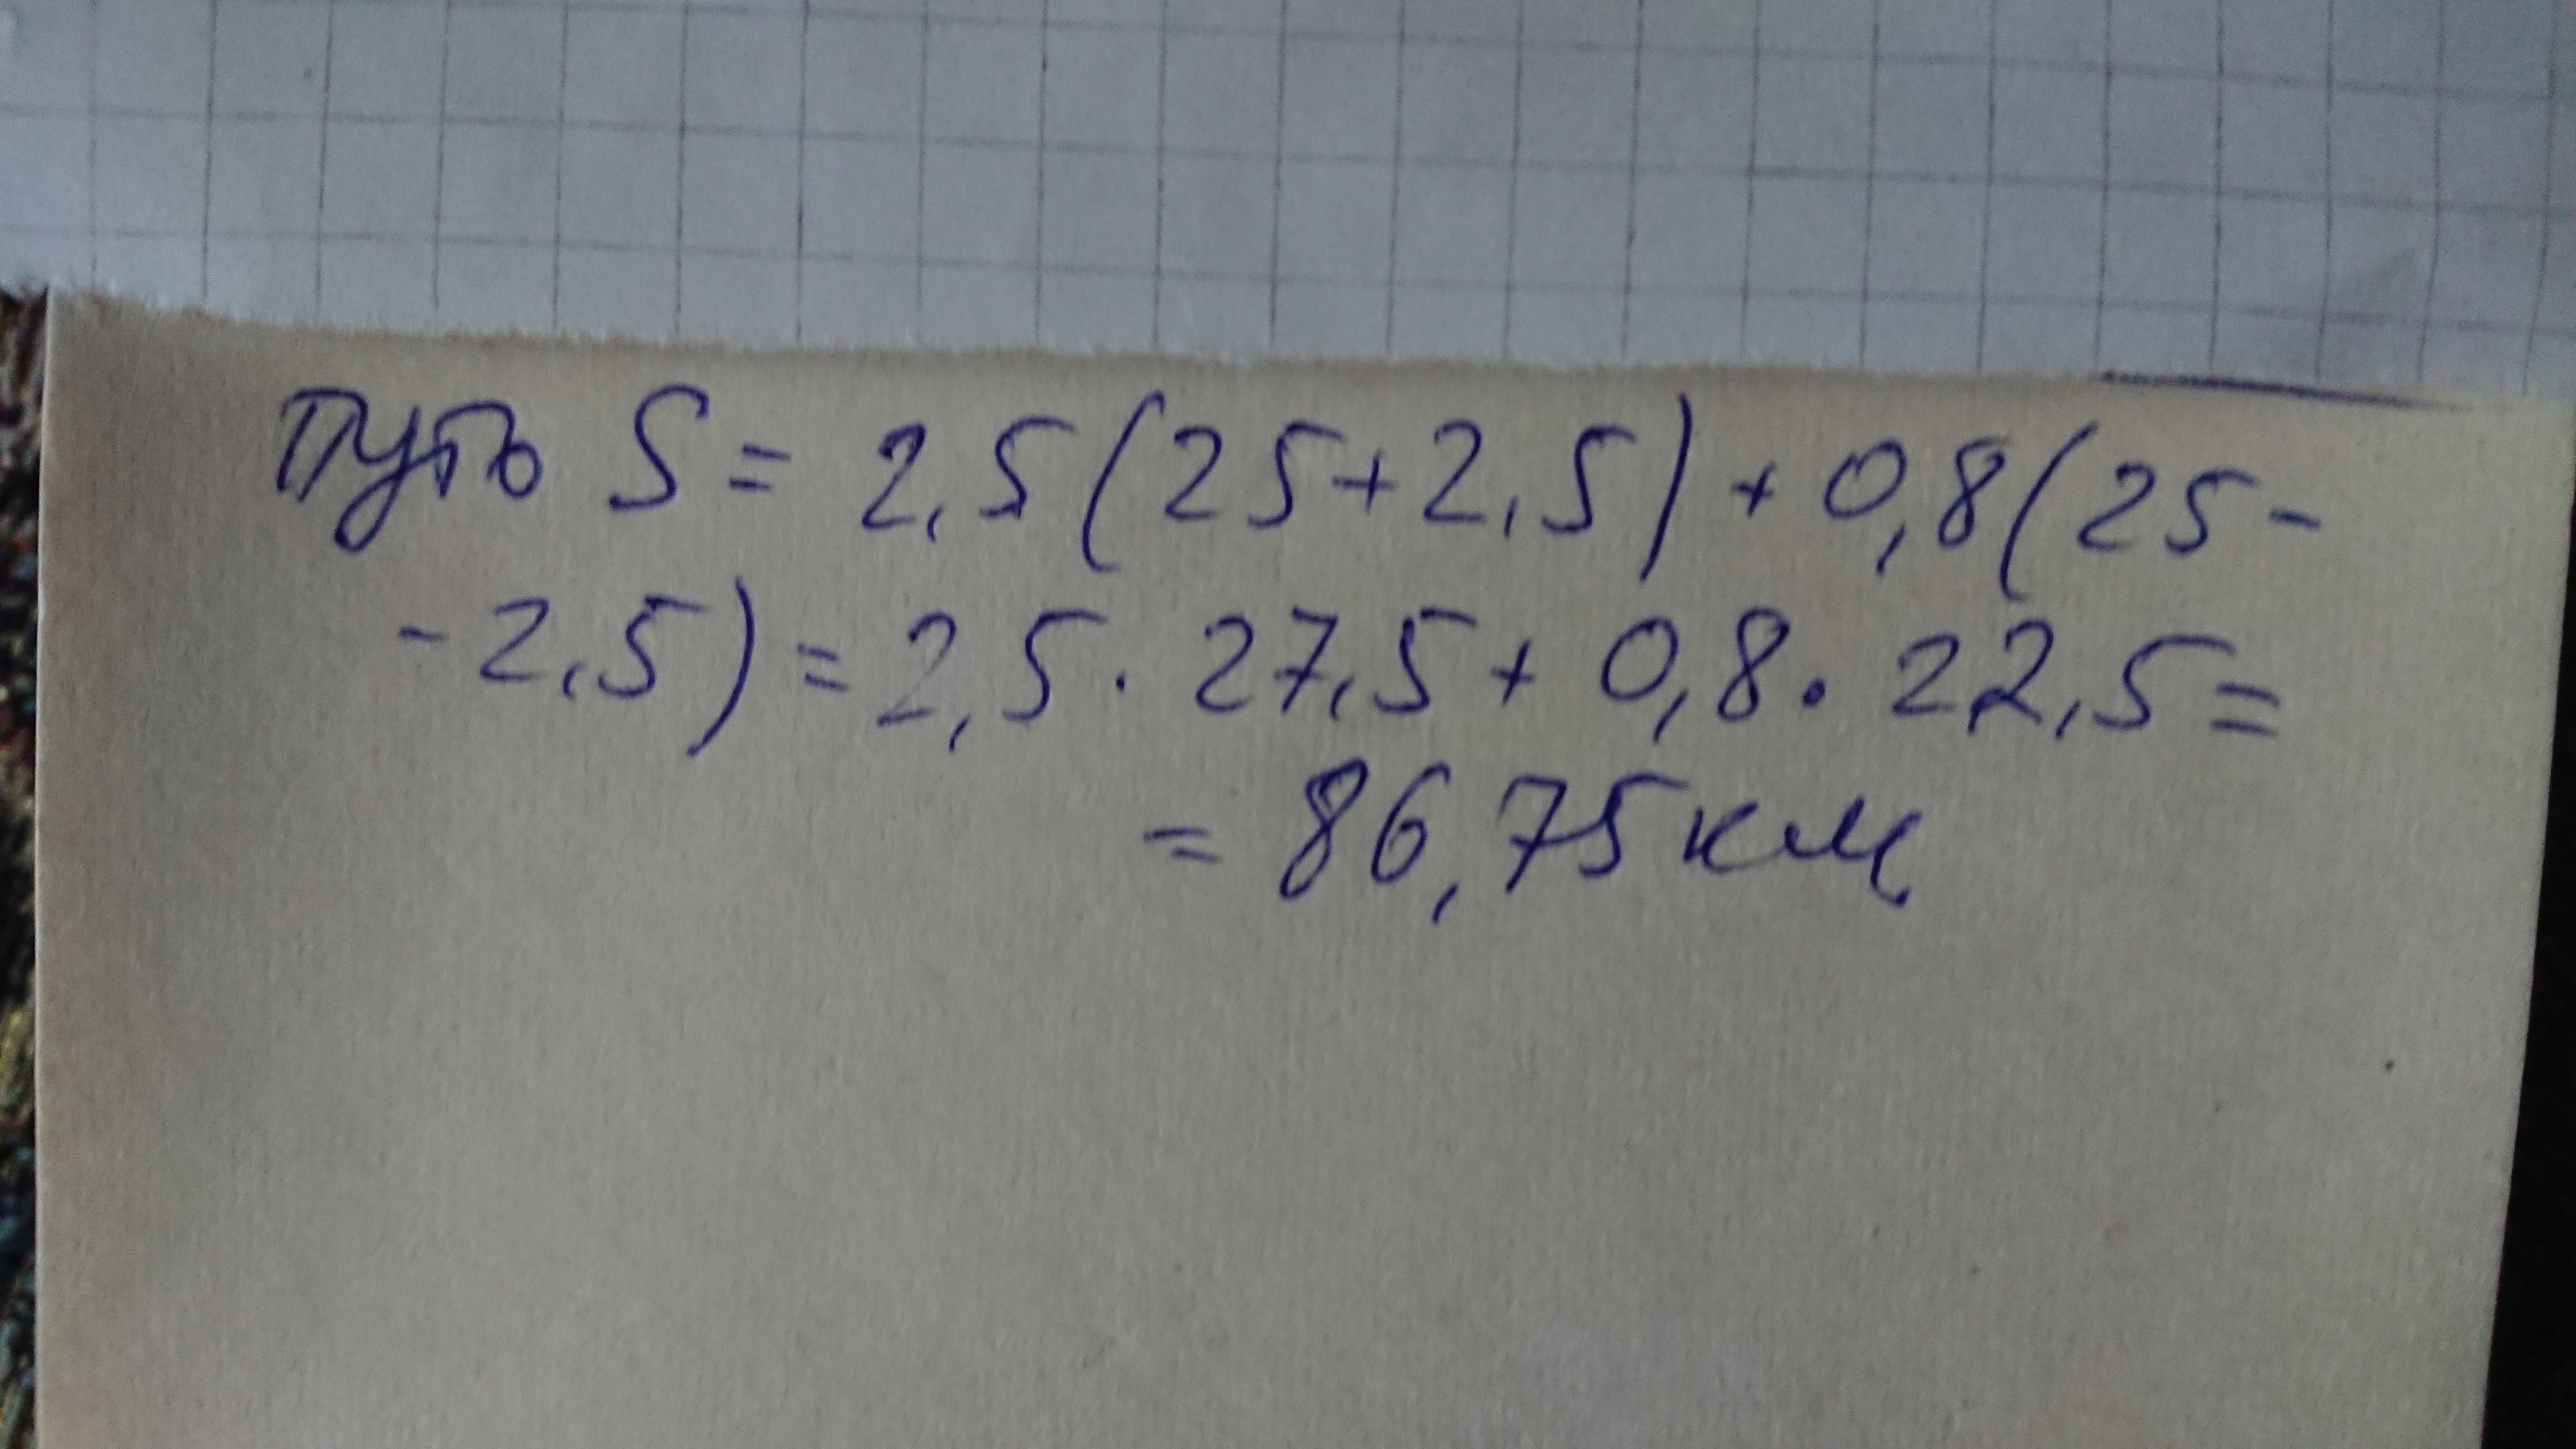 путь S = 2,5(25+2,5) + 0,8(25-
-2,5) = 2,5 · 27,5 + 0,8 · 22,5 =
= 86,75 км